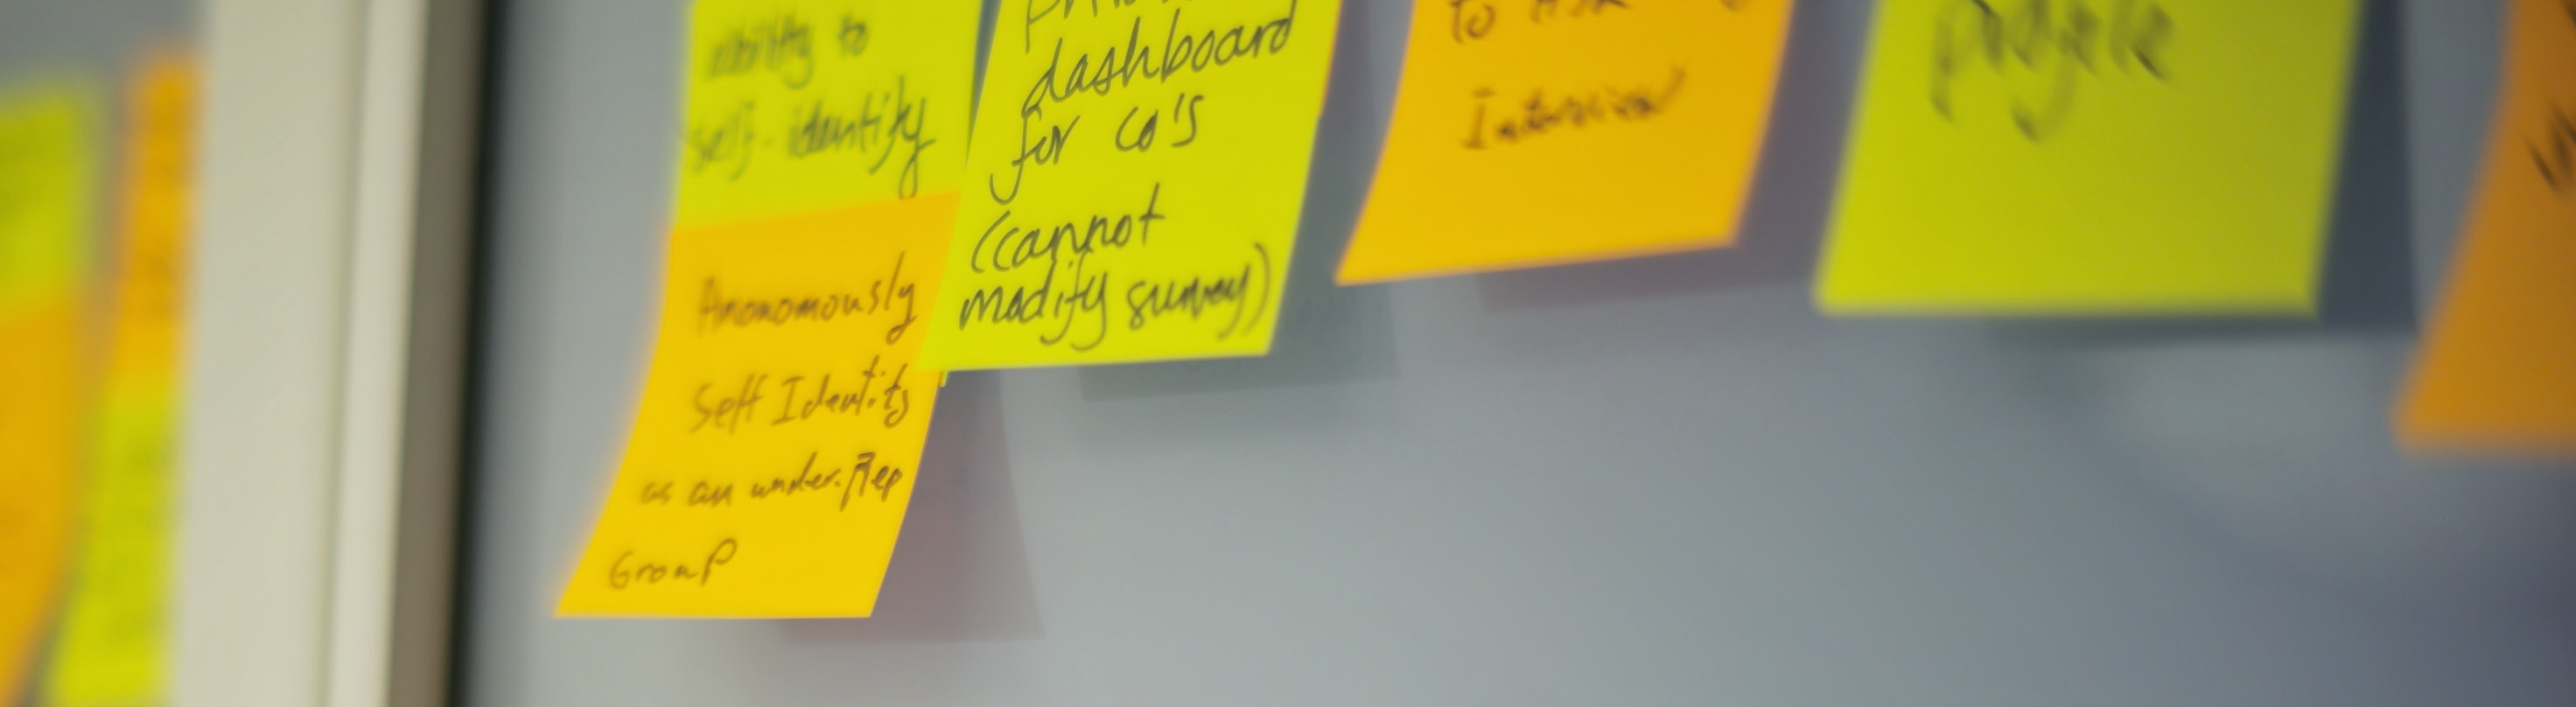 ability to
self-identify
Anonomously
Self Identity
as an under.Rep
Group
dashboard
for co's
(cannot
modify survey)
to Ask
Interview
people